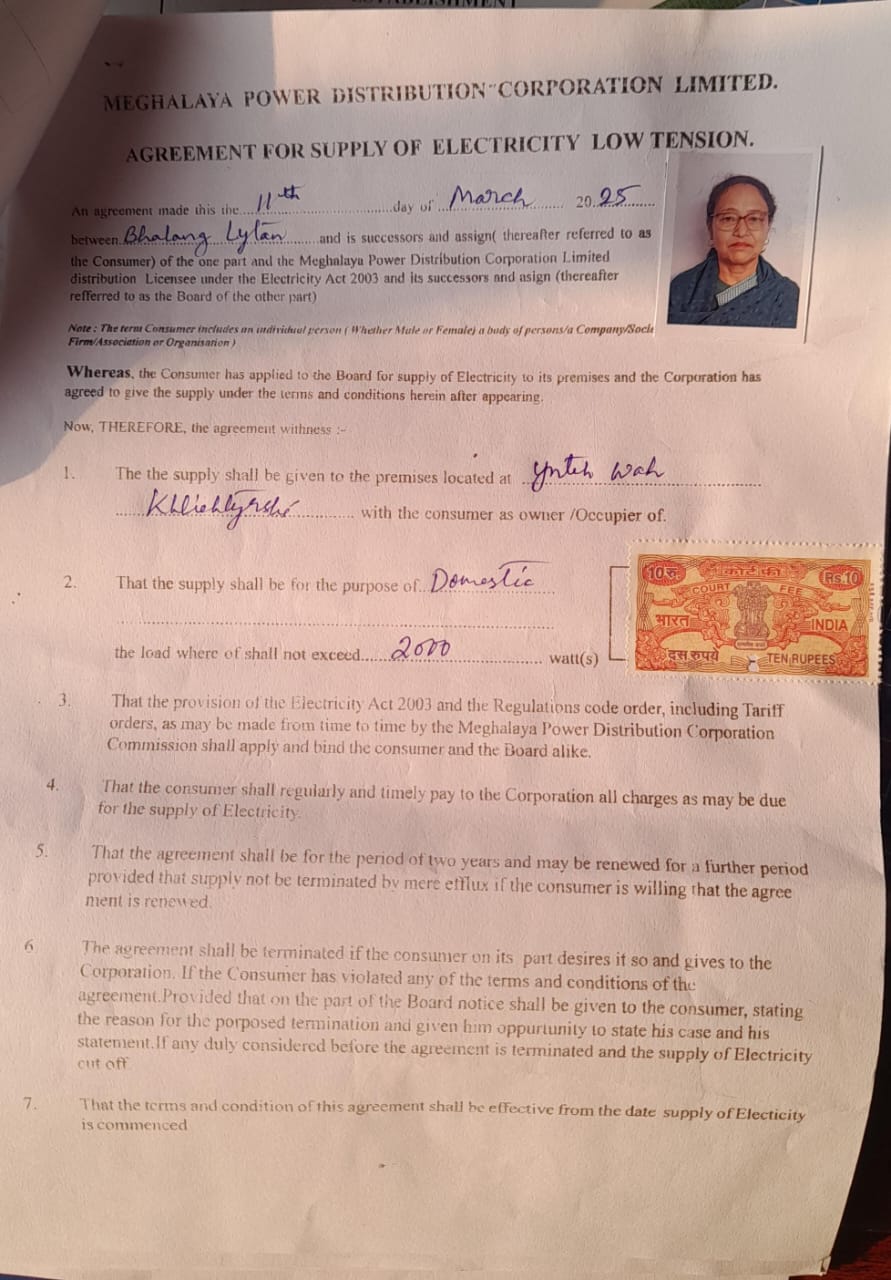 MEGHALAYA POWER DISTRIBUTION CORPORATION LIMITED.
AGREEMENT FOR SUPPLY OF ELECTRICITY LOW TENSION.
An agreement made this the....11th....day of....March.... 20..25....
between..Bhalang Lytan....and is successors and assign( thereafter referred to as
the Consumer) of the one part and the Meghalaya Power Distribution Corporation Limited
distribution Licensee under the Electricity Act 2003 and its successors and asign (thereafter
refferred to as the Board of the other part)
Note : The term Consumer includes an individual person ( Whether Male or Female) a body of persons/a Company/Socie
Firm/Association or Organisation )
Whereas, the Consumer has applied to the Board for supply of Electricity to its premises and the Corporation has
agreed to give the supply under the terms and conditions herein after appearing.
Now, THEREFORE, the agreement withness :-
1. The the supply shall be given to the premises located at ....Ynteh Wah....
.... with the consumer as owner /Occupier of.
2. That the supply shall be for the purpose of..Domestic....
the load where of shall not exceed....2000.... watt(s)
10रु. कोर्ट फी Rs.10
COURT FEE
भारत INDIA
दस रुपये TEN RUPEES
3. That the provision of the Electricity Act 2003 and the Regulations code order, including Tariff
orders, as may be made from time to time by the Meghalaya Power Distribution Corporation
Commission shall apply and bind the consumer and the Board alike.
4. That the consumer shall regularly and timely pay to the Corporation all charges as may be due
for the supply of Electricity.
5. That the agreement shall be for the period of two years and may be renewed for a further period
provided that supply not be terminated by mere efflux if the consumer is willing that the agree
ment is renewed.
6 The agreement shall be terminated if the consumer on its part desires it so and gives to the
Corporation. If the Consumer has violated any of the terms and conditions of the
agreement.Provided that on the part of the Board notice shall be given to the consumer, stating
the reason for the porposed termination and given him oppurtunity to state his case and his
statement.If any duly considered before the agreement is terminated and the supply of Electricity
cut off
7. That the terms and condition of this agreement shall be effective from the date supply of Electicity
is commenced